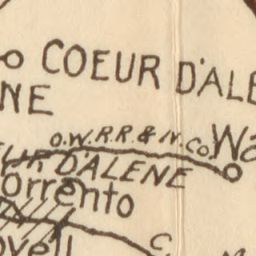 COEUR D'ALE
NE
O.W.R.R. & N. Co.
Wa
UR D'ALENE
orrento
ovell
C